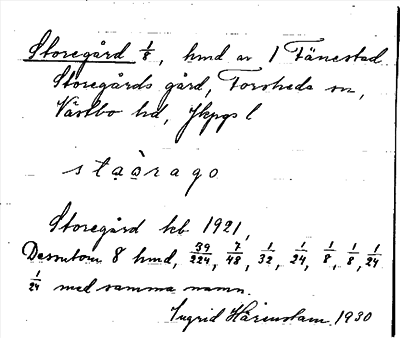 Storegård 1/8, hmd av 1 Fänestad
Storegårds gård, Forsheda sn,
Västbo hd, Jkpgs l
staòrago
Storegård kb 1921,
Dessutom 8 hmd, 39/224, 7/48, 1/32, 1/24, 1/8, 1/8, 1/24
1/24 med samma namn.
Ingrid Härenstam 1930